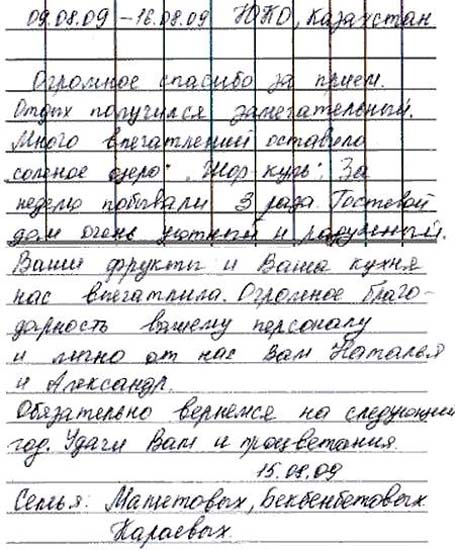 09.08.09 – 16.08.09 ЮКО, Казахстан
Огромное спасибо за прием.
Отдых получился замечательный.
Много впечатлений оставило
соленое озеро "Жор-куль". За
неделю побывали 3 раза. Гостевой
дом очень уютный и радушный.
Ваши фрукты и Ваша кухня
нас впечатлила. Огромное благо-
дарность вашему персоналу
и лично от нас Вам Наталья
и Александр.
Обязательно вернемся на следующий
год. Удачи Вам и процветания.
15.08.09
Семья: Машетовых, Бекбенбетовых
Караевых.